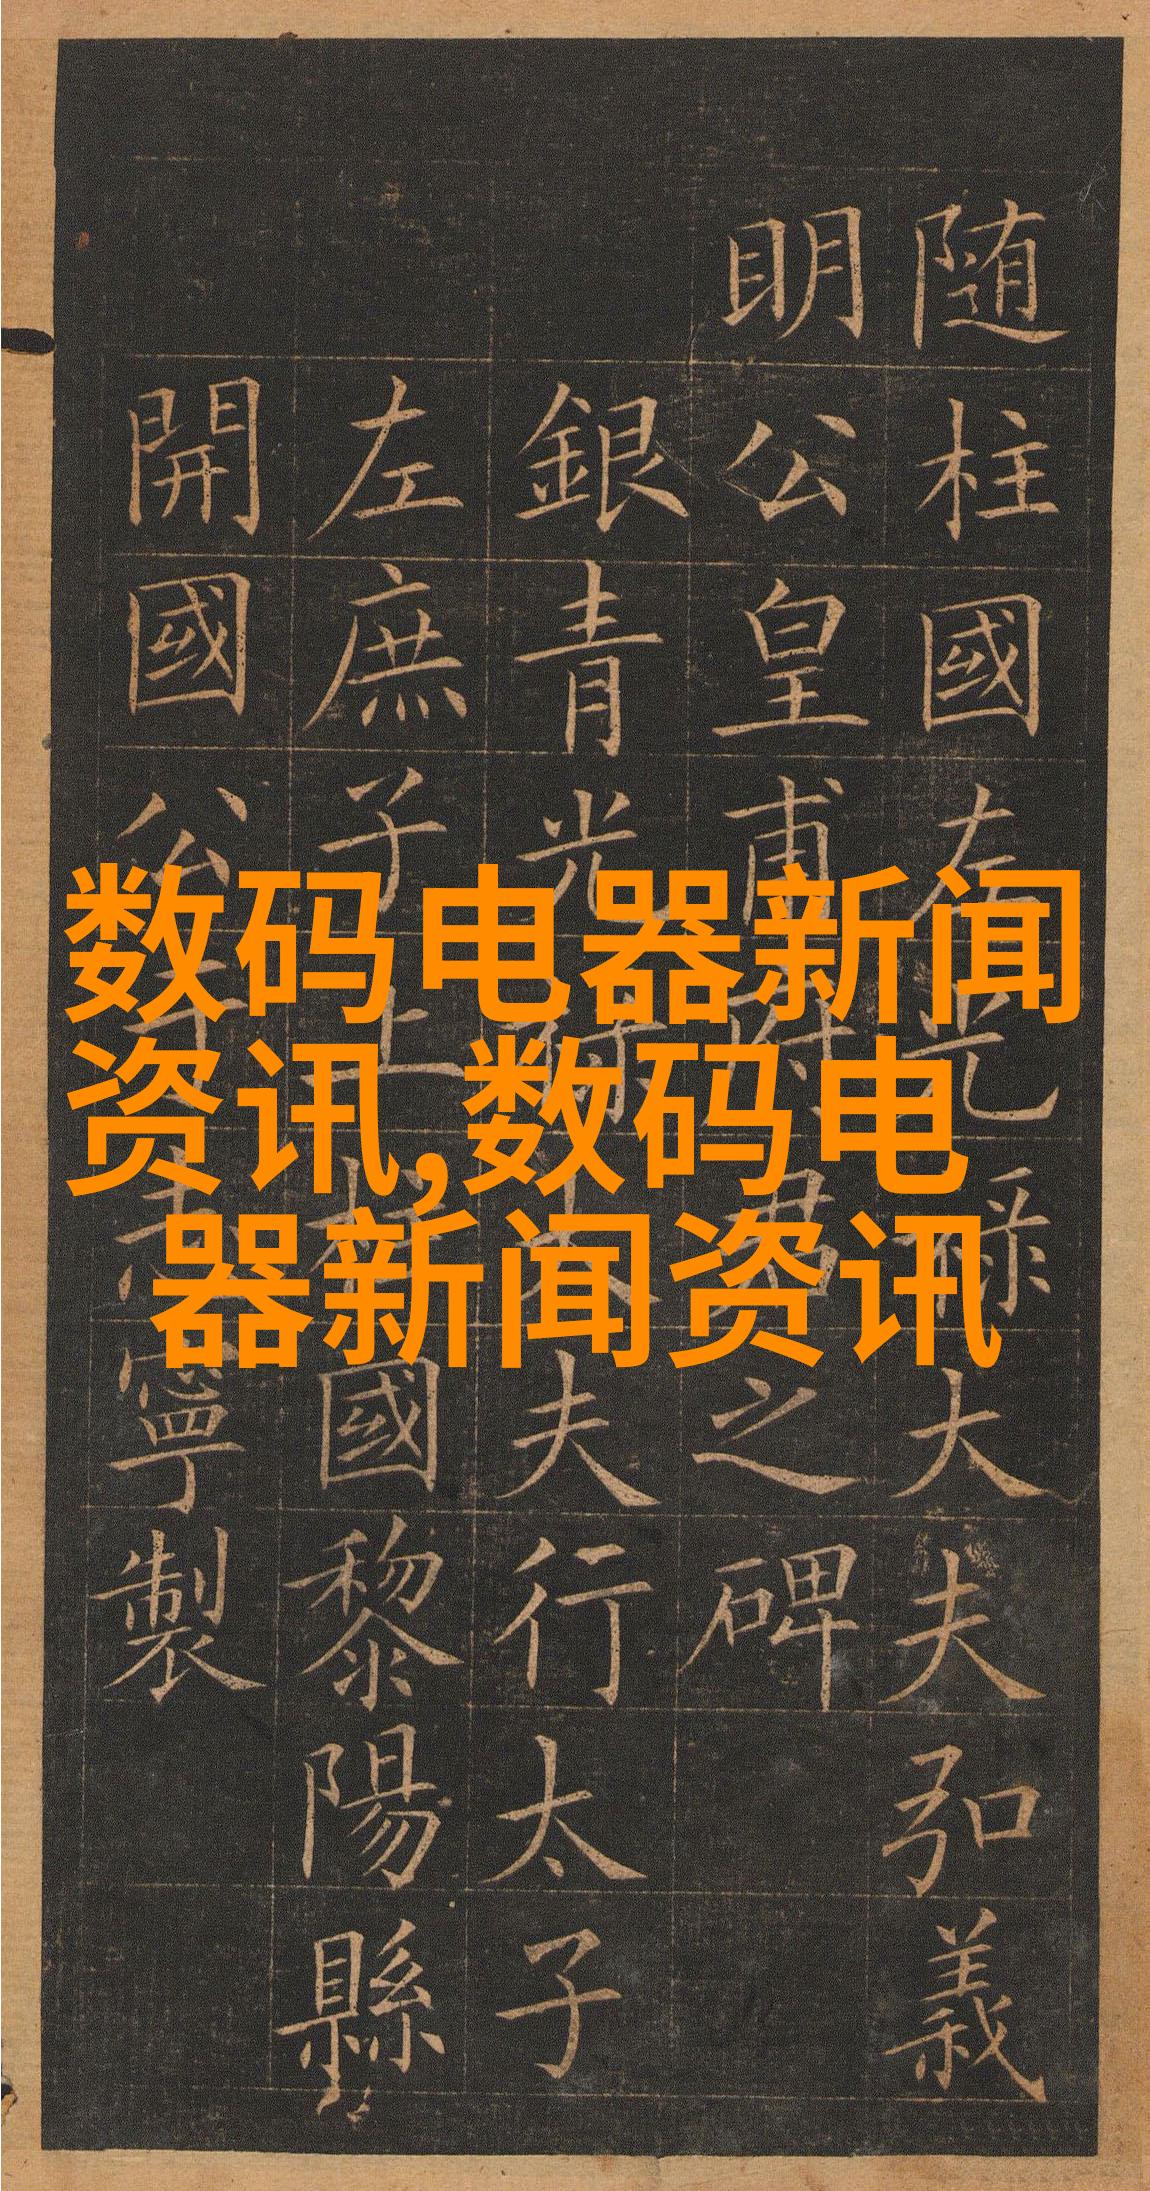 数码电器新闻
资讯,数码电
器新闻资讯
随柱國左光禄大夫弘義
明公皇甫府君之碑
銀青光禄大夫行太子
左庶子上柱國黎陽縣
開國公于志寧製